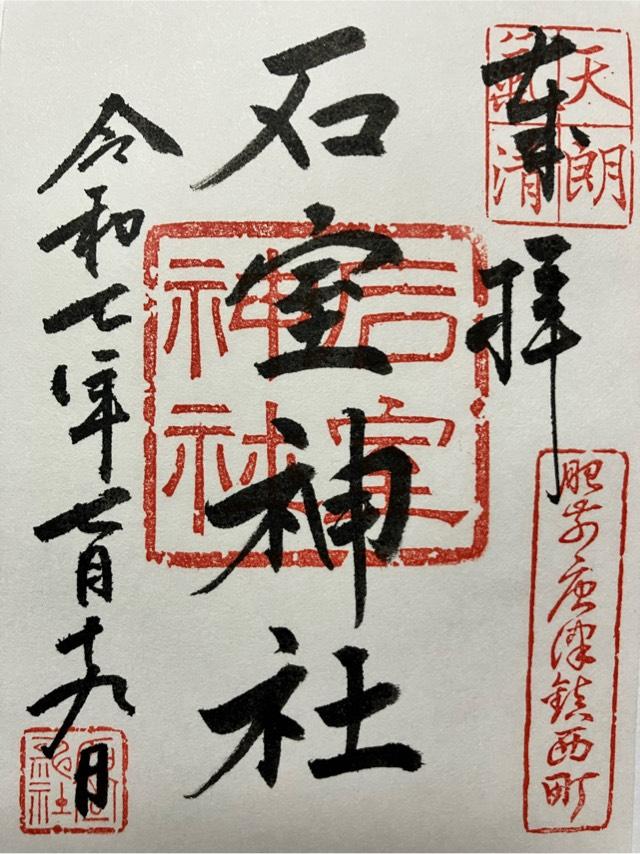 天朗
氣清
奉拝
肥前唐津鎮西町
石室神社
石室
神社
令和七年七月十九日